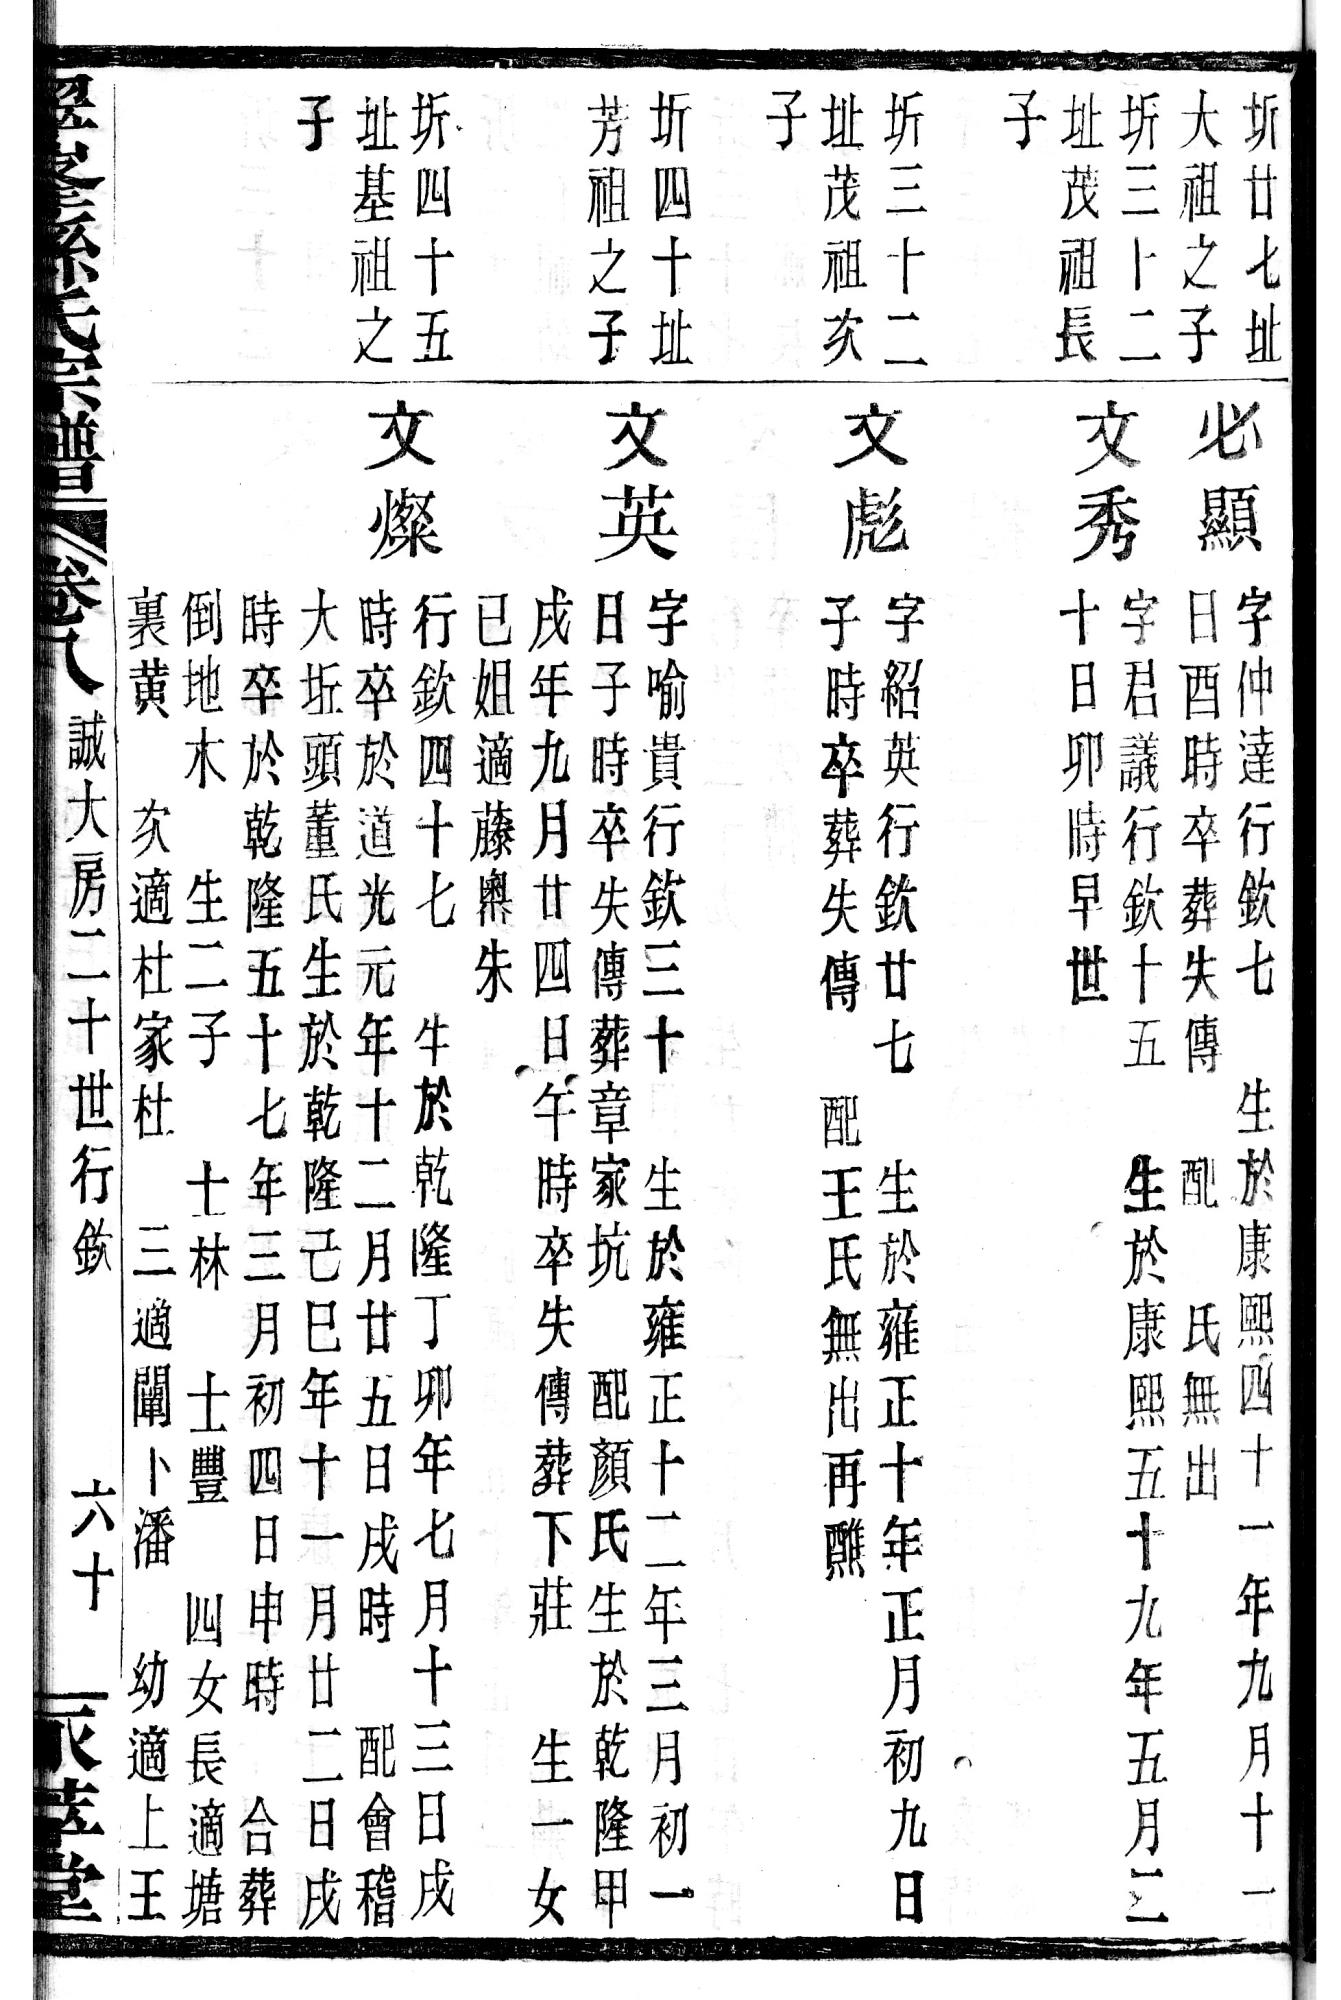 圻廿七址
大祖之子
必顯
字仲達行欽七　生於康熙四十一年九月十一
日酉時卒葬失傳　配　氏無出
圻三十二
址茂祖長
子
文秀
字君議行欽十五　生於康熙五十九年五月二
十日卯時早世
圻三十二
址茂祖次
子
文彪
字紹英行欽廿七　生於雍正十年正月初九日
子時卒葬失傳　配王氏無出再醮
圻四十址
芳祖之子
文英
字喻貴行欽三十　生於雍正十二年三月初一
日子時卒失傳葬章家坑　配顏氏生於乾隆甲
戌年九月廿四日午時卒失傳葬下莊　生一女
已姐適藤奧朱
圻四十五
址基祖之
子
文燦
行欽四十七　生於乾隆丁卯年七月十三日戌
時卒於道光元年十二月廿五日戌時　配會稽
大坵頭董氏生於乾隆己巳年十一月廿二日戌
時卒於乾隆五十七年三月初四日申時　合葬
倒地木　生二子　士林　士豐　四女長適塘
裏黃　次適杜家杜　三適闡卜潘　幼適上王
孫氏宗譜　卷八　誠大房二十世行欽　六十　萃堂